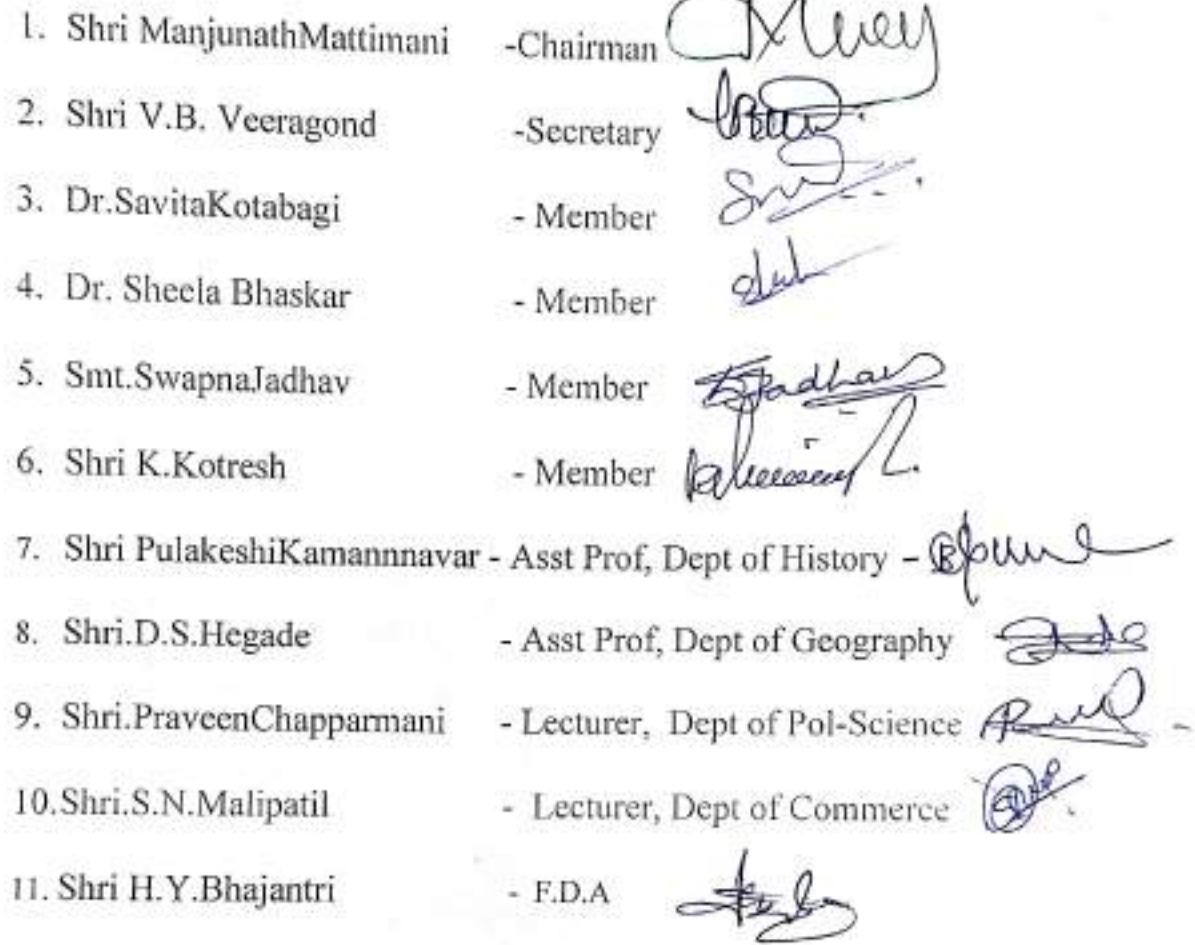 1. Shri ManjunathMattimani -Chairman
2. Shri V.B. Veeragond -Secretary
3. Dr.SavitaKotabagi - Member
4. Dr. Sheela Bhaskar - Member
5. Smt.SwapnaJadhav - Member SJadhav
6. Shri K.Kotresh - Member
7. Shri PulakeshiKamannnavar - Asst Prof, Dept of History –
8. Shri.D.S.Hegade - Asst Prof, Dept of Geography
9. Shri.PraveenChapparmani - Lecturer, Dept of Pol-Science
10.Shri.S.N.Malipatil - Lecturer, Dept of Commerce
11. Shri H.Y.Bhajantri - F.D.A